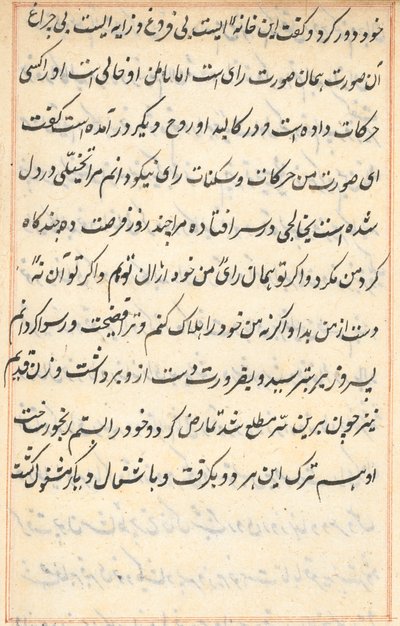 خود دور کرد و گفت این خانه ایست بی فروغ و زاویه ایست بی چراغ
آن صورت همان صورت رای است اما باطن او خالی است او را کسی
حرکات داده است و در کالبد او روح دیگر در آمده است گفت
ای صورت من حرکات و سکنات رای نیکو دانم مرا تخیلی در دل
شده است خالجی در سر افتاده مرا چند روز فرصت ده چندگاه
کرد من مگرد و اگر تو همان رای من خود ازان توام و اگر تو آن نه
دست از من بدار و اگر نه من خود را هلاک کنم و ترا فضیحت و رسوا گردانم
پسر وزیر بترسید و بضرورت دست از و برداشت و زن قدیم
نیز چون برین سر مطلع شد تمارض کرد و خود را بستم رنجور ساخت
او هم ترک این هر دو بگرفت و باشتغال دیگر مشغول گشت